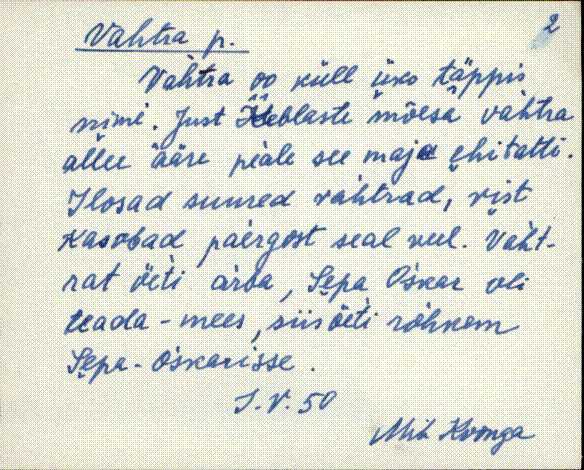 2
Vahtra p.
Vahtra oo küll üks täppis
nimi. Just Keblaste mõesa vahtra
allee ääre peale see maja ehitatti.
Ilosad suured vahtrad, vist
kasobad paergost seal veel. Vaht-
rat öeti arva, Sepa Oskar oli
teada-mees, siis öeti rohkem
Sepa-Oskarisse.
S.V. 50
Mih